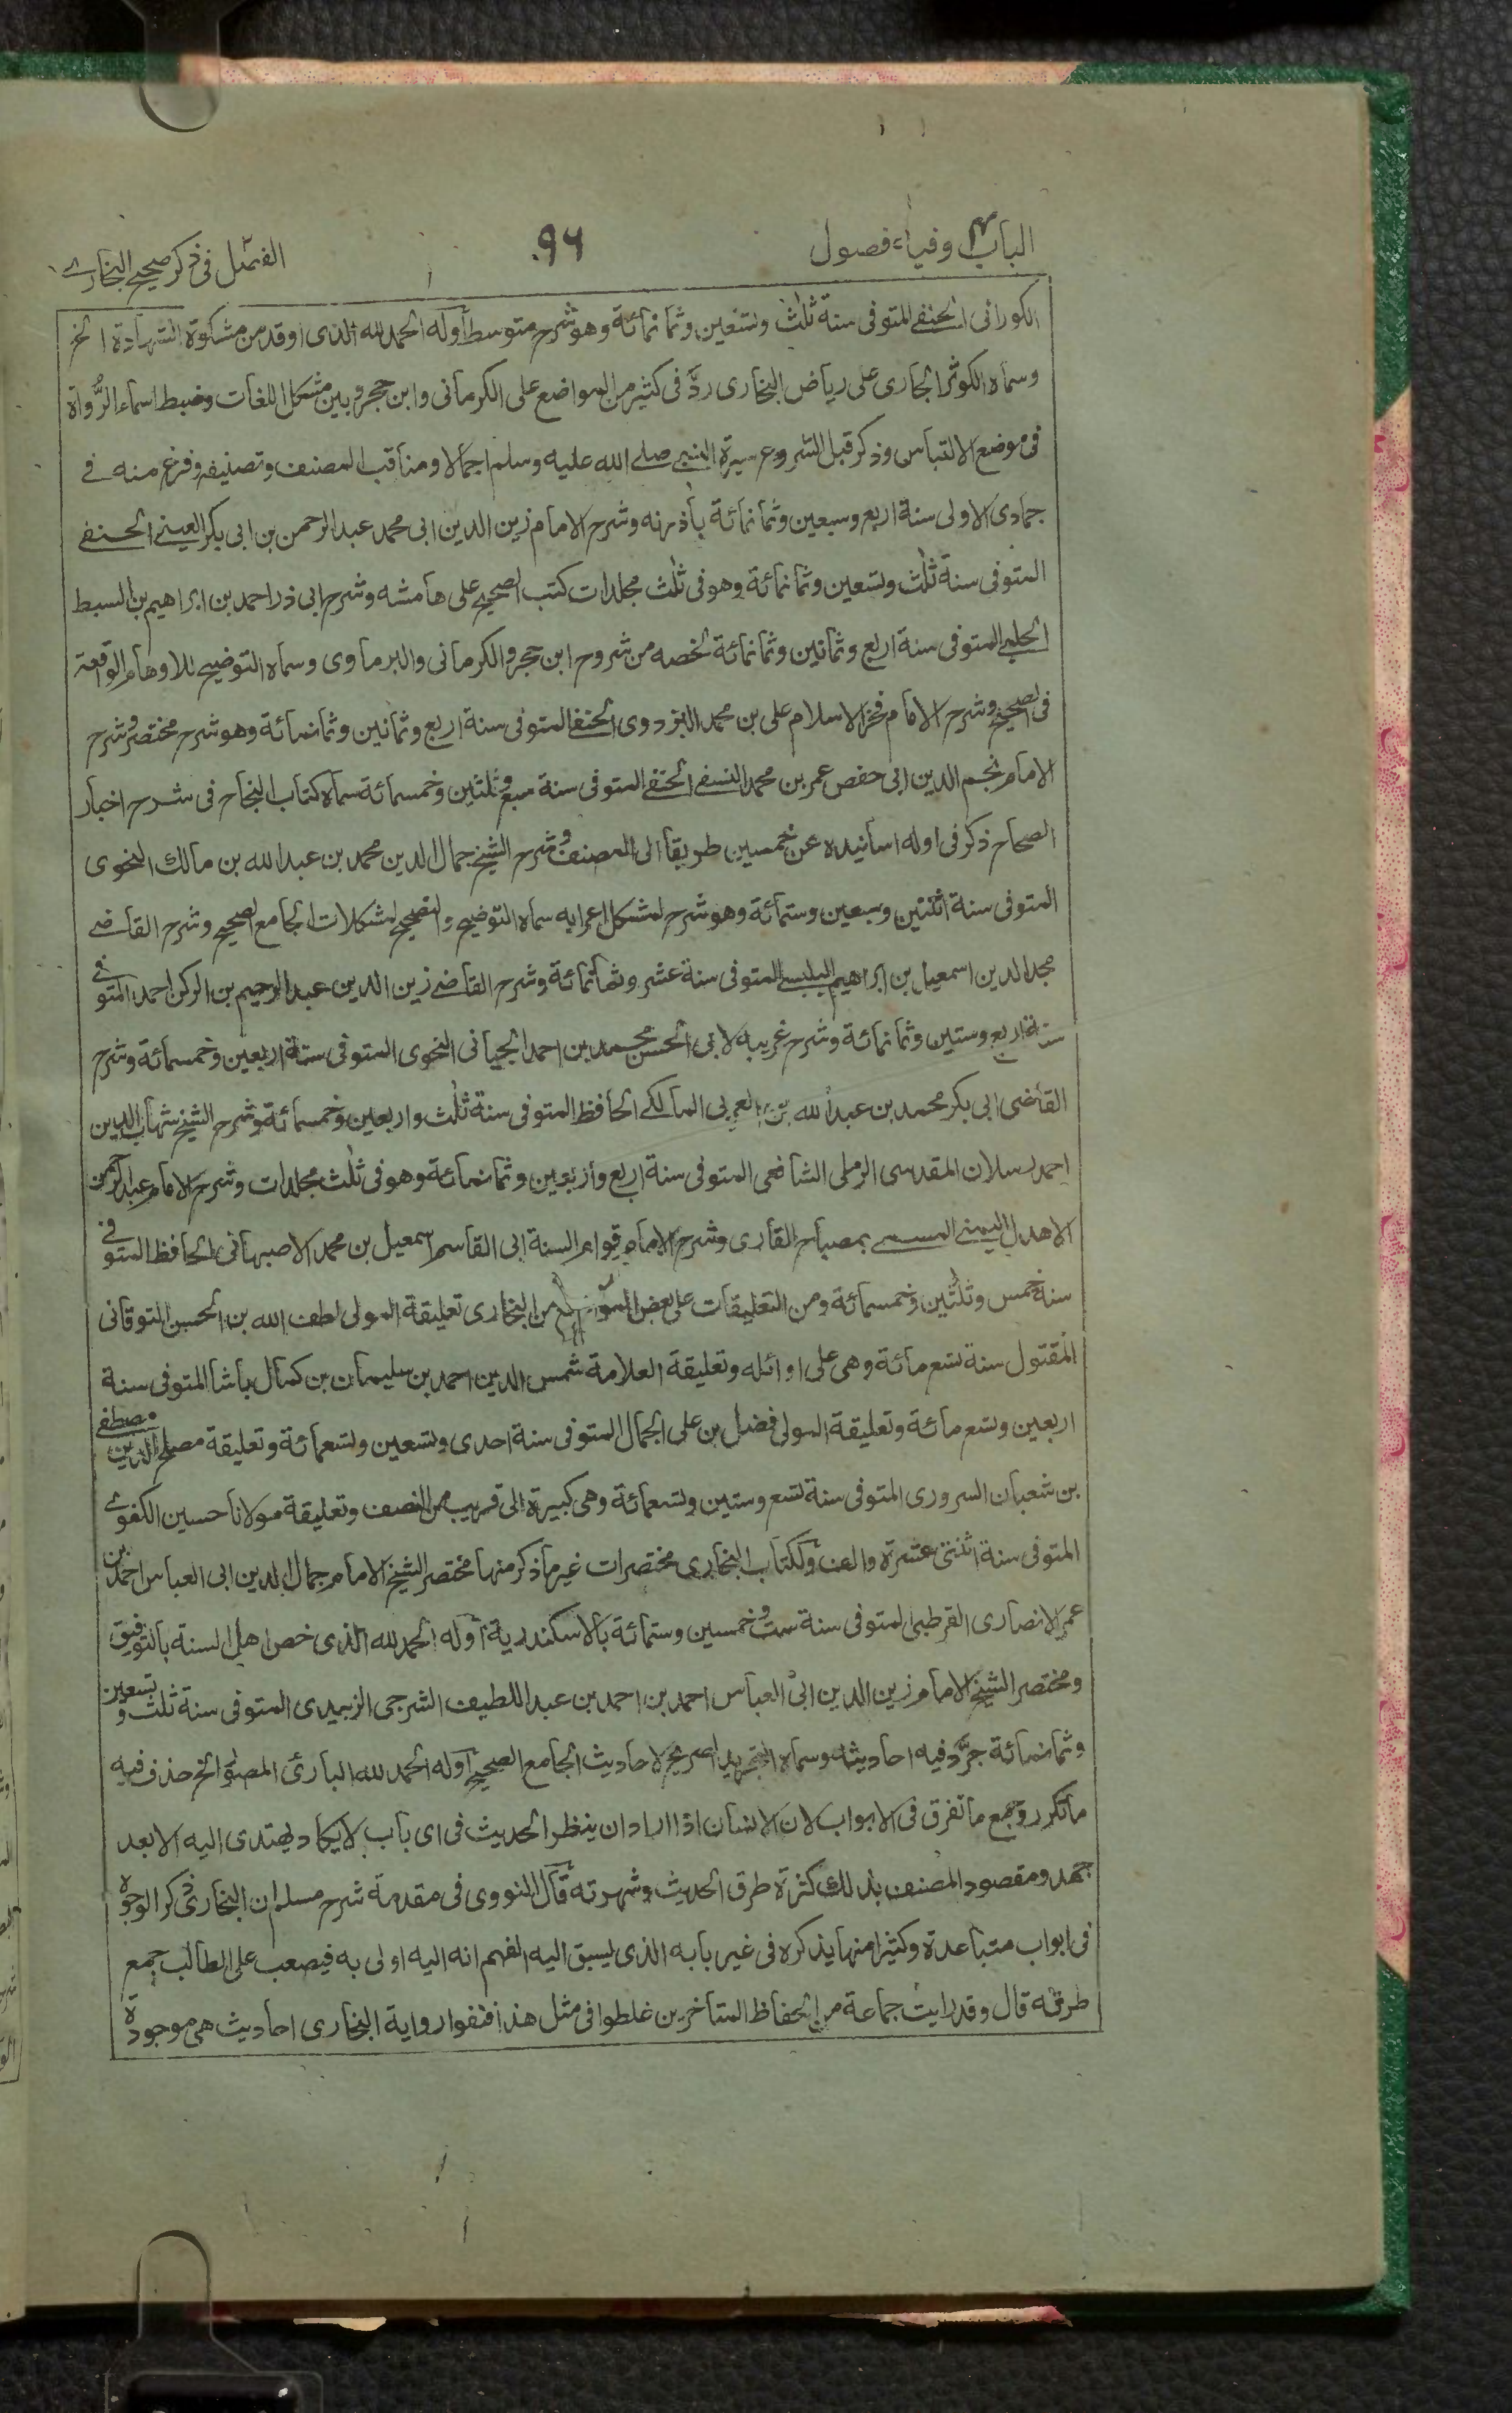 الباب٤ وفياء فصول
٩٦
الفصل في ذكر صحيح البخاري
الكورانى الحنفى المتوفى سنة ثلث وتسعين وثمانمائة وهو شرح متوسط اوله الحمد لله الذى اوقد من مشكوة الشهادة الخ
وسماه الكوثر الجارى على رياض البخارى ردّ فى كثير من المواضع على الكرمانى وابن حجر وبين مشكل اللغات وضبط اسماء الرُّواة
فى موضع الالتباس وذكر قبل الشروع سيرة النبى صلے الله عليه وسلم اجمالا ومناقب المصنف وتصنيفه وفرغ منه فے
جمادى الاولى سنة اربع وسبعين وثمانمائة بأذرنه وشرح الامام زين الدين ابى محمد عبد الرحمن بن ابى بكر العينى الحنفے
المتوفى سنة ثلث وتسعين وثمانمائة وهو فى ثلث مجلدات كتب الصحيح على هامشه وشرح ابى ذر احمد بن ابراهيم بن السبط
الحلبے المتوفى سنة اربع وثمانين وثمانمائة لخصه من شروح ابن حجر والكرمانى والبرماوى وسماه التوضيح للاوهام الواقعة
فى الصحيح وشرح الامام فخر الاسلام على بن محمد البزدوى الحنفے المتوفى سنة اربع وثمانين وثمانمائة وهو شرح مختصر وشرح
الامام نجم الدين ابى حفص عمر بن محمد النسفے الحنفے المتوفى سنة سبع وثلثين وخمسمائة سماه كتاب النجاح فى شرح اخبار
الصحاح ذكر فى اوله اسانيده عن خمسين طريقا الى المصنف وشرح الشيخ جمال الدين محمد بن عبد الله بن مالك النحوى
المتوفى سنة اثنتين وسبعين وستمائة وهو شرح لمشكل اعرابه سماه التوضيح والتصحيح لمشكلات الجامع الصحيح وشرح القاضے
مجد الدين اسمعيل بن ابراهيم البلبيسے المتوفى سنة عشر وثمانمائة وشرح القاضے زين الدين عبد الرحيم بن الركن احمد المتوفى
سنة اربع وستين وثمانمائة وشرح غريبه لابى الحسن محمد بن احمد الجيانى النحوى المتوفى سنة اربعين وخمسمائة وشرح
القاضى ابى بكر محمد بن عبد الله بن العربى المالكے الحافظ المتوفى سنة ثلث واربعين وخمسمائة وشرح الشيخ شهاب الدين
احمد رسلان المقدسى الرملى الشافعى المتوفى سنة اربع وأربعين وثمانمائة وهو فى ثلث مجلدات وشرح الامام عبد الرحمن
الاهدل اليمنى المسمے بمصباح القارى وشرح الامام قوام السنة ابى القاسم اسمعيل بن محمد الاصبهانى الحافظ المتوفى
سنة خمس وثلثين وخمسمائة ومن التعليقات على بعض المواضع من البخارى تعليقة المولى لطف الله بن الحسن التوقانى
المقتول سنة تسع مائة وهى على اوائله وتعليقة العلامة شمس الدين احمد بن سليمان بن كمال باشا المتوفى سنة
اربعين وتسع مائة وتعليقة المولى فضل بن على الجمال المتوفى سنة احدى وتسعين وتسعمائة وتعليقة مصلح الدين مصطفے
بن شعبان السرورى المتوفى سنة تسع وستين وتسعمائة وهى كبيرة الى قريب من النصف وتعليقة مولانا حسين الكفوے
المتوفى سنة اثنتى عشرة والف ولكتاب البخارى مختصرات غير ما ذكر منها مختصر الشيخ الامام جمال الدين ابى العباس احمد بن
عمر الانصارى القرطبى المتوفى سنة ست وخمسين وستمائة بالاسكندرية اوله الحمد لله الذى خص اهل السنة بالتوفيق
ومختصر الشيخ الامام زين الدين ابى العباس احمد بن احمد بن عبد اللطيف الشرجى الزبيدى المتوفى سنة ثلث وتسعين
وثمانمائة جرَّد فيه احاديثه وسماه التجريد الصريح لاحاديث الجامع الصحيح اوله الحمد لله البارئ المصور الخ حذف فيه
ما تكرر وجمع ما تفرق فى الابواب لان الانسان اذا اراد ان ينظر الحديث فى اى باب لا يكاد يهتدى اليه الا بعد
جهد ومقصود المصنف بذلك كثرة طرق الحديث وشهرته قال النووى فى مقدمة شرح مسلم ان البخارى ذكر الوجوه
فى ابواب متباعدة وكثيرا منها يذكره فى غير بابه الذى يسبق اليه الفهم انه اليه اولى به فيصعب على الطالب جمع
طرقه قال وقد رايت جماعة من الحفاظ المتأخرين غلطوا فى مثل هذا فنفوا رواية البخارى احاديث هى موجودة